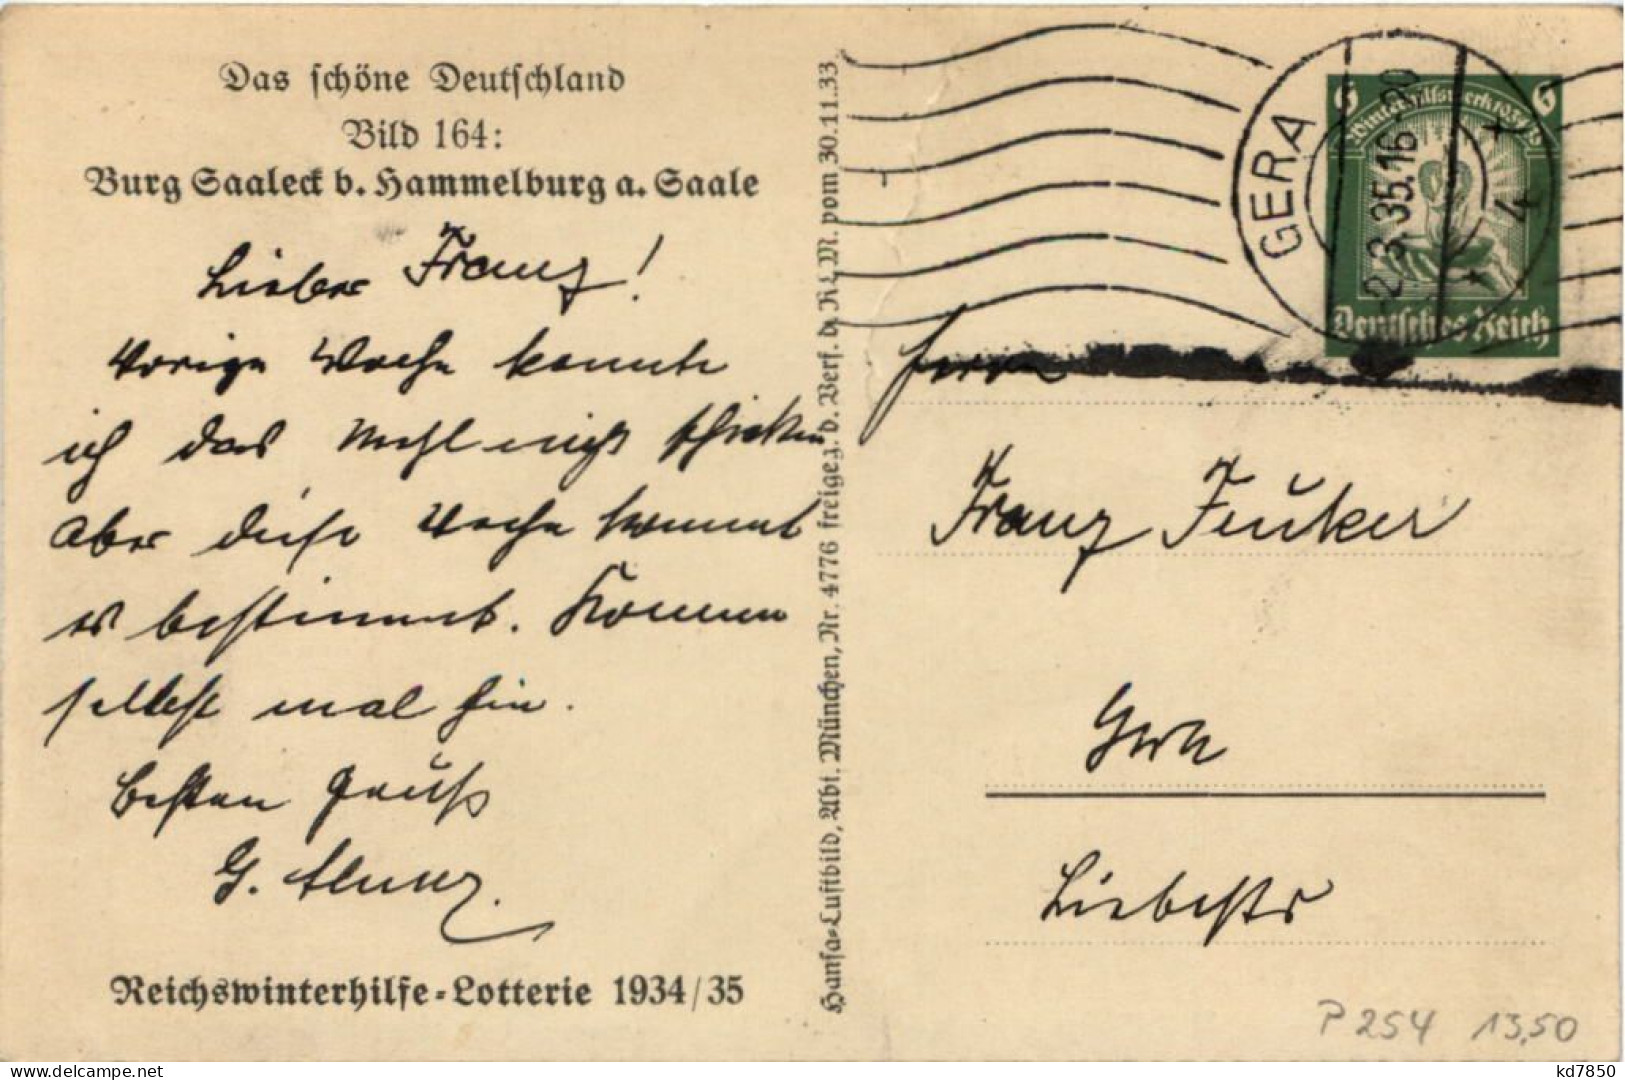 Das schöne Deutschland
Bild 164:
Burg Saaleck b. Hammelburg a. Saale
Lieber Franz!
Vorige Woche konnte
ich das Mehl nicht schicken
Aber diese Woche kommt
es bestimmt. Komme
selbst mal hin.
Besten Gruß
G.
Reichswinterhilfe-Lotterie 1934/35
Hansa-Luftbild, Abt. München, Nr. 4776 freigeg. d. Verf. d. RLM. vom 30.11.33
GERA
2.3.35.16
4
6 Winterhilfswerk 1934/35 6
Deutsches Reich
Herrn
Franz
Gera
Liebestr
P 254 13,50
kd7850